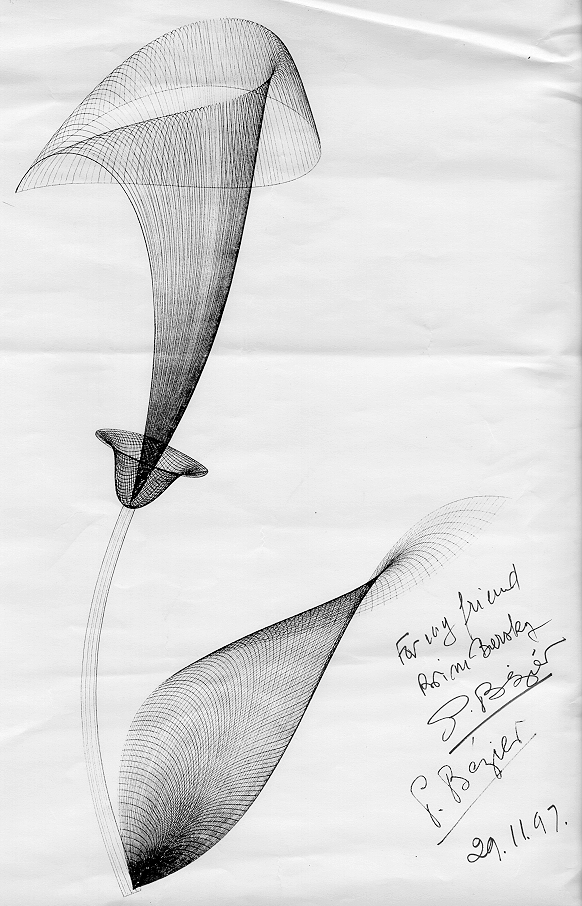 For my friend
Brian Barsky
P. Bézier
P. Bézier
29.11.97.